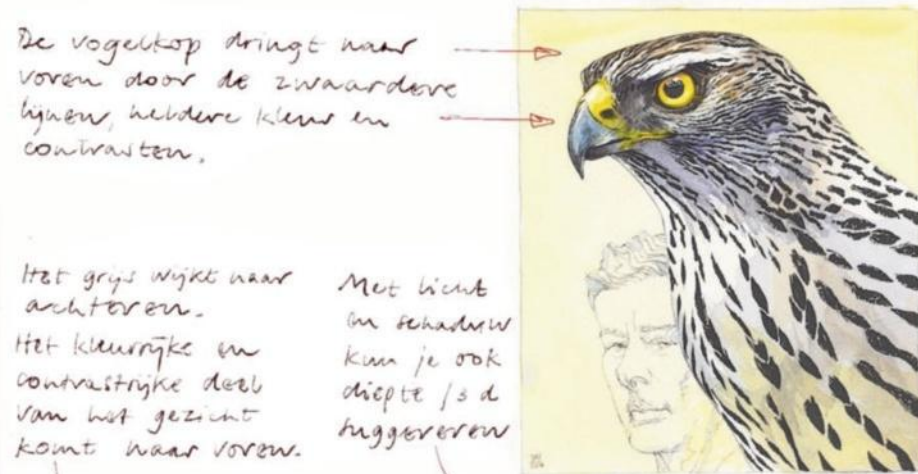 De vogelkop dringt naar
voren door de zwaardere
lijnen, heldere kleur en
contrasten.
Het grijs wijkt naar
achteren.
Het kleurrijke en
contrastrijke deel
van het gezicht
komt naar voren.
Met licht
en schaduw
kun je ook
diepte /3d
suggereren